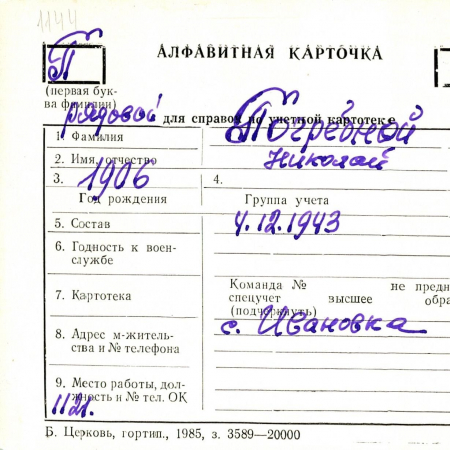 1144
П
АЛФАВИТНАЯ КАРТОЧКА
(первая бук-
ва фамилии)
рядовой для справок по учетной картотеке
1. Фамилия Погребной
2. Имя, отчество Николай
3. 1906 4.
Год рождения Группа учета
5. Состав 4.12.1943
6. Годность к воен-
службе
Команда № не предн
7. Картотека спецучет высшее обра
(подчеркнуть)
с. Ивановка
8. Адрес м-житель-
ства и № телефона
9. Место работы, дол-
жность и № тел. ОК
1121.
Б. Церковь, гортип., 1985, з. 3589—20000